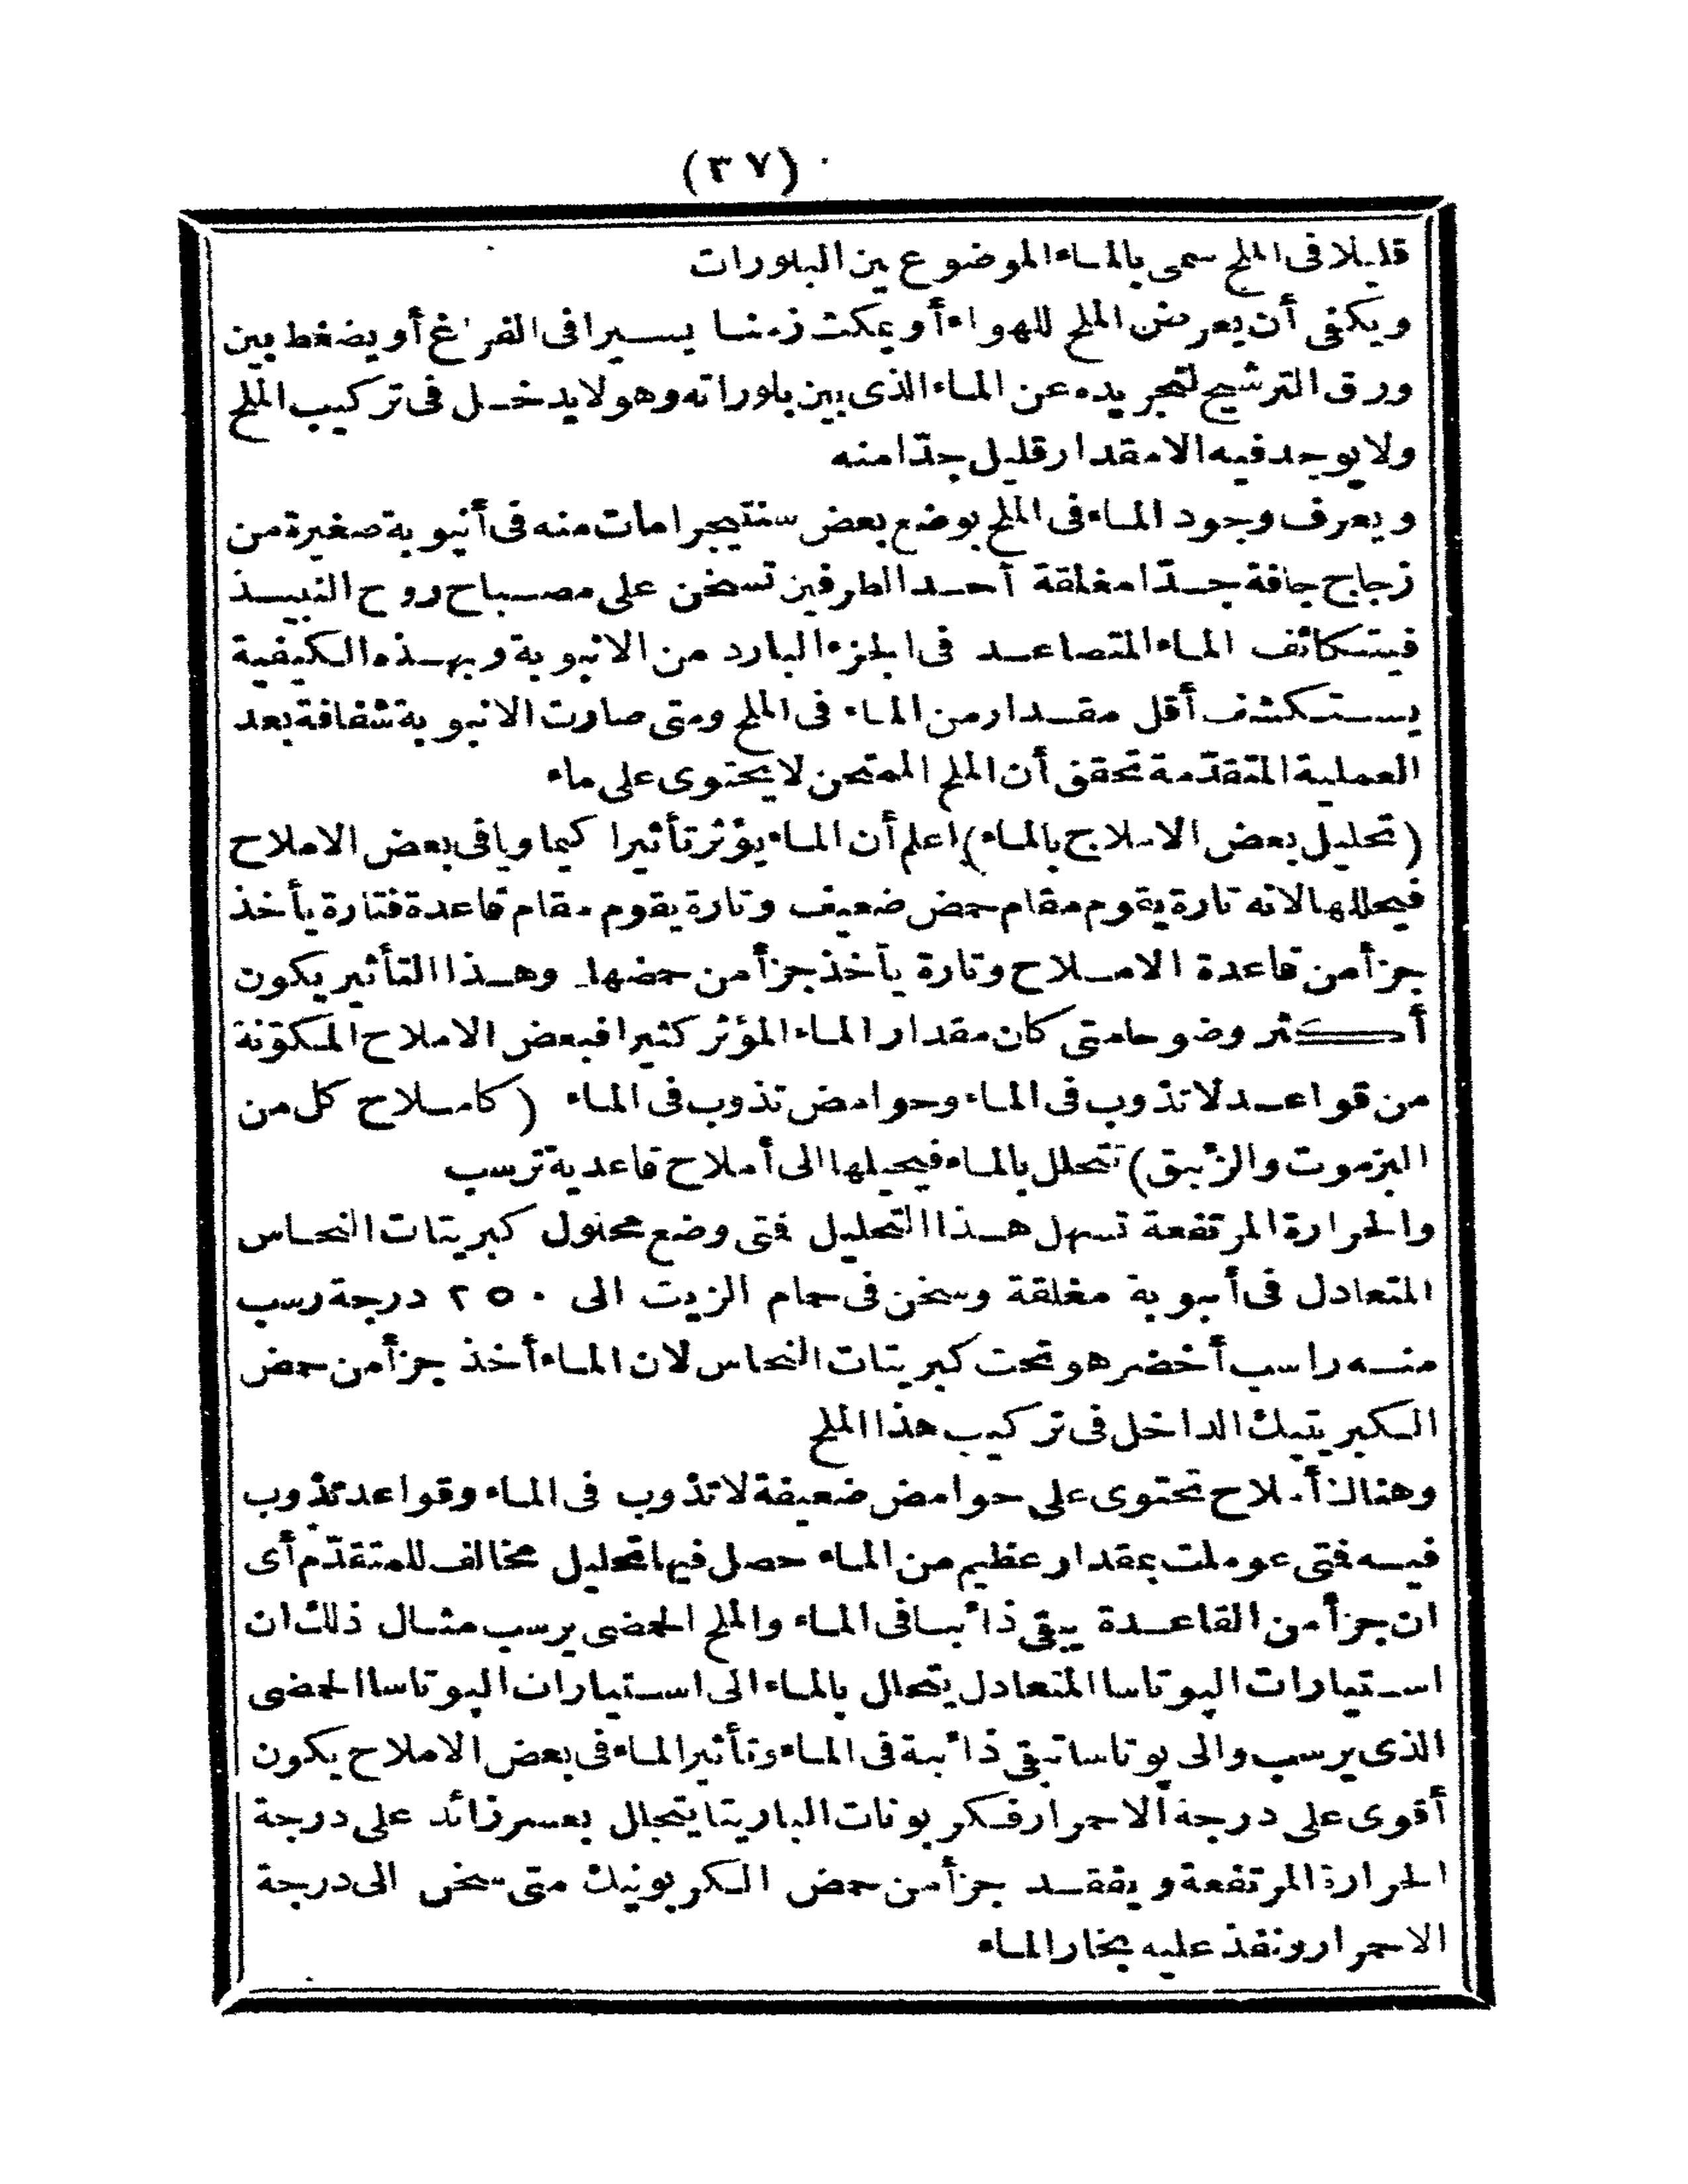 (٣٧)
قليلا فى الملح سمى بالماء الموضوع بين البلورات
ويكفى أن يعرض الملح للهواء أو يمكث زمنا يسيرا فى الفراغ أو يضغط بين
ورق الترشيح لتجريده عن الماء الذى بين بلوراته وهو لا يدخل فى تركيب الملح
ولا يوجد فيه الا مقدار قليل جدّا منه
ويعرف وجود الماء فى الملح بوضع بعض سنتيجرامات منه فى أنبوبة صغيرة من
زجاج جافة جدّا مغلقة أحد الطرفين تسخن على مصباح روح النبيذ
فيتكاثف الماء المتصاعد فى الجزء البارد من الانبوبة وبهذه الكيفية
يستكشف أقل مقدار من الماء فى الملح ومتى صارت الانبوبة شفافة بعد
العملية المتقدّمة تحقق أن الملح الممتحن لا يحتوى على ماء
(تحليل بعض الاملاح بالماء) اعلم أن الماء يؤثر تأثيرا كيماويا فى بعض الاملاح
فيحللها لانه تارة يقوم مقام حمض ضعيف وتارة يقوم مقام قاعدة فتارة يأخذ
جزأ من قاعدة الاملاح وتارة يأخذ جزأ من حمضها وهذا التأثير يكون
أكثر وضوحا متى كان مقدار الماء المؤثر كثيرا فبعض الاملاح المكوّنة
من قواعد لا تذوب فى الماء وحوامض تذوب فى الماء (كاملاح كل من
البزموت والزئبق) تتحلل بالماء فيحيلها الى أملاح قاعدية ترسب
والحرارة المرتفعة تسهل هذا التحليل فتى وضع محلول كبريتات النحاس
المتعادل فى أنبوبة مغلقة وسخن فى حمام الزيت الى ٢٥٠ درجة رسب
منه راسب أخضر هو تحت كبريتات النحاس لان الماء أخذ جزأ من حمض
الكبريتيك الداخل فى تركيب هذا الملح
وهناك أملاح تحتوى على حوامض ضعيفة لا تذوب فى الماء وقواعد تذوب
فيه فتى عوملت بمقدار عظيم من الماء حصل فيها تحليل مخالف للمتقدّم أى
ان جزأ من القاعدة يبقى ذائبا فى الماء والملح الحمضى يرسب مثال ذلك ان
استيارات البوتاسا المتعادل يتحال بالماء الى استيارات البوتاسا الحمضى
الذى يرسب والى بوتاسا تبقى ذائبة فى الماء وتأثير الماء فى بعض الاملاح يكون
أقوى على درجة الاحمرار فكربونات الباريتا يتحلل بعسر زائد على درجة
الحرارة المرتفعة ويفقد جزأ من حمض الكربونيك متى سخن الى درجة
الاحمرار ونفذ عليه بخار الماء